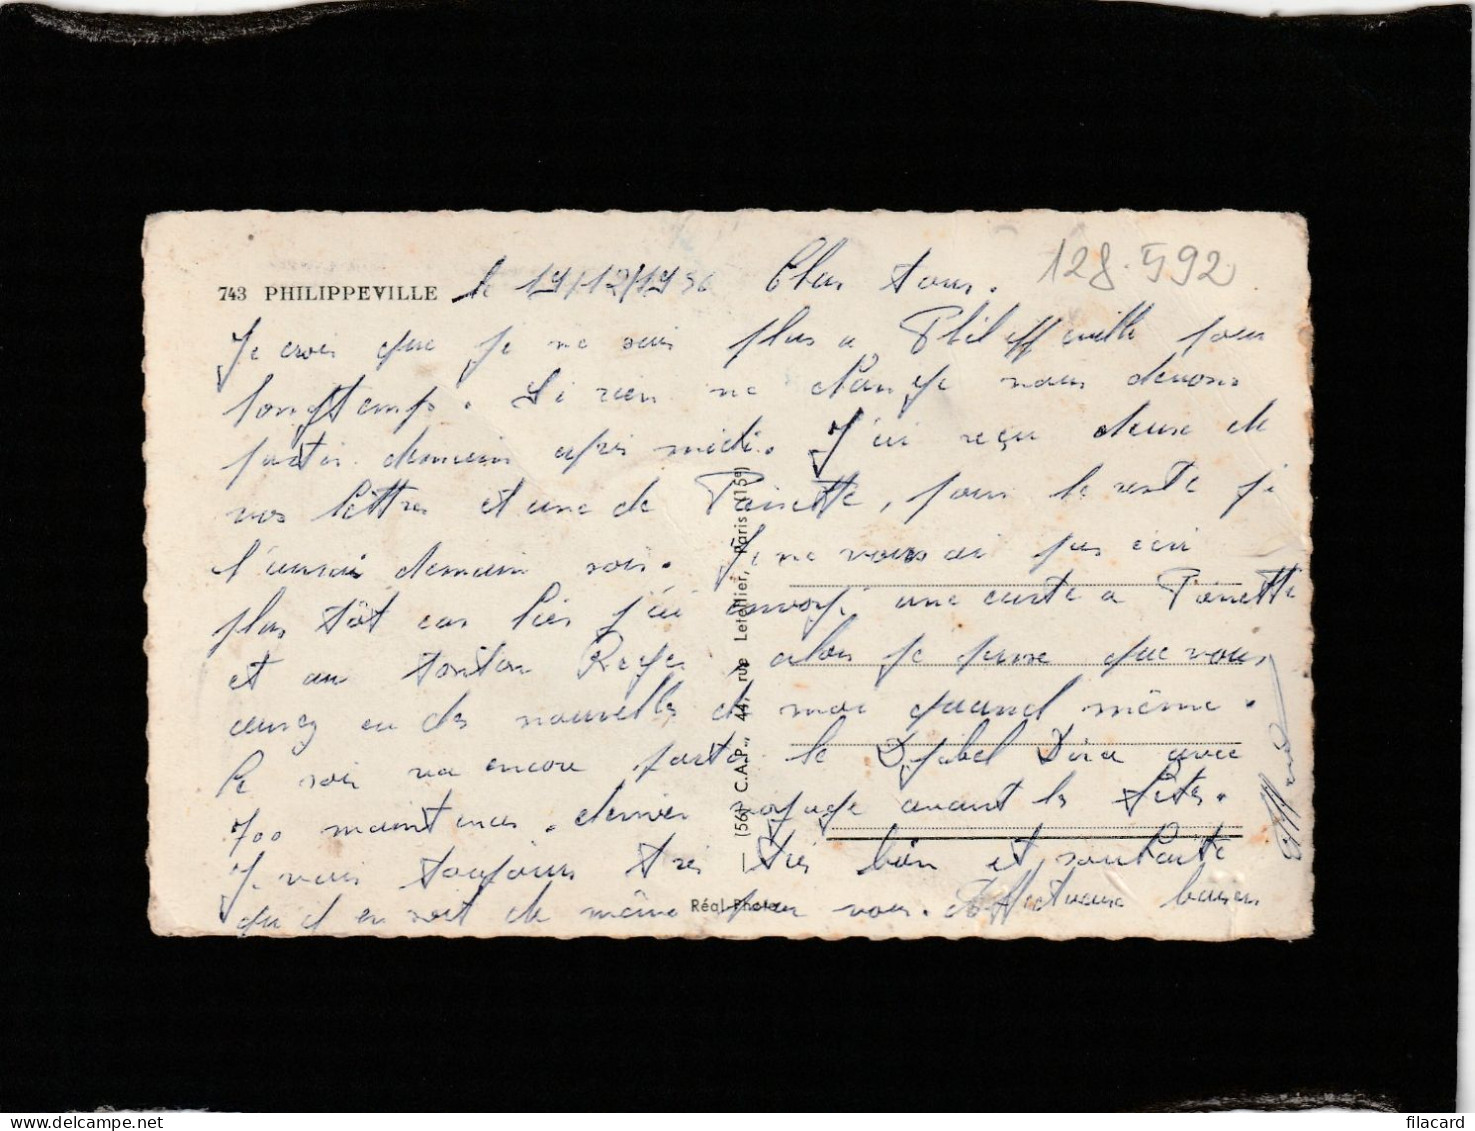 743 PHILIPPEVILLE le 19/12/1956 Chers tous. 128.592
Je crois que je ne suis plus a Philippeville pour
longtemps. Si rien ne change nous devons
partir demain après midi. J'ai reçu deux de
vos lettres et une de Pierrette, pour le reste je
l'aurai demain soir. Je ne vous ai pas écri
plus tôt car hier j'ai envoyé une carte a Pierrette
et au tonton Roger, alors je pense que vous
aurez eu des nouvelles de moi quand même.
Ce soir va encore partir le Djebel Dira avec
700 maintenus. dernier voyage avant les fêtes.
Je vais toujours très très bien et souhaite
qu'il en soit de même pour vous. Affectueux baisers
(567 C.A.P., 44, rue Letellier, Paris (15e)
Réal-Photo
filacard.com